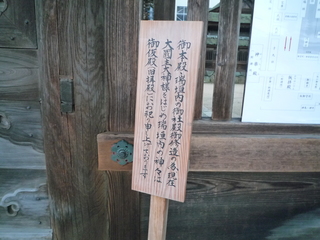 御本殿・瑞垣内の御社殿御修造の為、現在
大国主大神様をはじめ瑞垣内の神々は
御仮殿(旧拝殿)にお祀り申し上げております